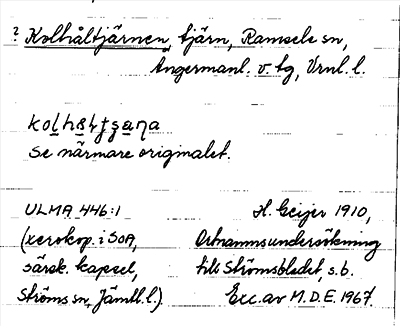 ? Kolhåltjärnen, tjärn, Ramsele sn,
Ångermanl. v. tg, Vrnl. l.
Se närmare originalet.
ULMA 446:1 H. Geijer 1910,
(xerokop. i SOA, Ortnamnsundersökning
särsk. kapsel, till Strömsbladet, s. b.
Ströms sn, Jämtl. l.) Exc. av M.D.E. 1967.